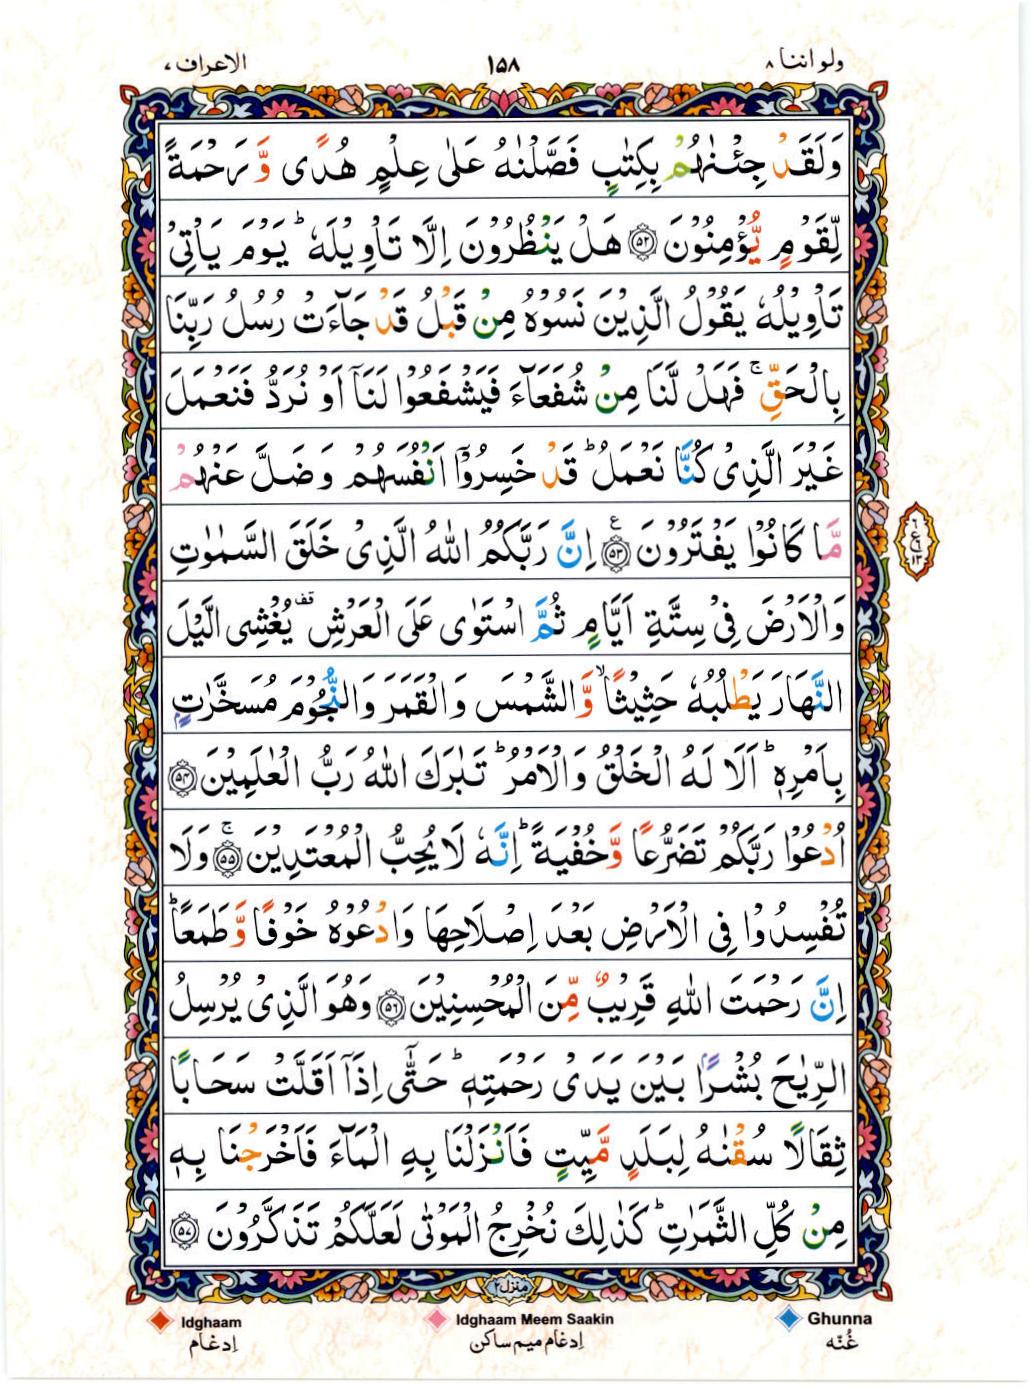 ولو اننا ۸ ۱۵۸ الاعراف ۷
وَلَقَدْ جِئْنٰهُمْ بِكِتٰبٍ فَصَّلْنٰهُ عَلٰى عِلْمٍ هُدًى وَّرَحْمَةً
لِّقَوْمٍ يُّؤْمِنُوْنَ ﴿۵۲﴾ هَلْ يَنْظُرُوْنَ اِلَّا تَاْوِيْلَهٗ ؕ يَوْمَ يَاْتِىْ
تَاْوِيْلُهٗ يَقُوْلُ الَّذِيْنَ نَسُوْهُ مِنْ قَبْلُ قَدْ جَآءَتْ رُسُلُ رَبِّنَا
بِالْحَقِّ ۚ فَهَلْ لَّنَا مِنْ شُفَعَآءَ فَيَشْفَعُوْا لَنَاۤ اَوْ نُرَدُّ فَنَعْمَلَ
غَيْرَ الَّذِىْ كُنَّا نَعْمَلُ ؕ قَدْ خَسِرُوْۤا اَنْفُسَهُمْ وَضَلَّ عَنْهُمْ
مَّا كَانُوْا يَفْتَرُوْنَ ﴿۵۳﴾ ع اِنَّ رَبَّكُمُ اللّٰهُ الَّذِىْ خَلَقَ السَّمٰوٰتِ
وَالْاَرْضَ فِىْ سِتَّةِ اَيَّامٍ ثُمَّ اسْتَوٰى عَلَى الْعَرْشِ قف يُغْشِى الَّيْلَ
النَّهَارَ يَطْلُبُهٗ حَثِيْثًا ۙ وَّالشَّمْسَ وَالْقَمَرَ وَالنُّجُوْمَ مُسَخَّرٰتٍۭ
بِاَمْرِهٖ ؕ اَلَا لَهُ الْخَلْقُ وَالْاَمْرُ ؕ تَبٰرَكَ اللّٰهُ رَبُّ الْعٰلَمِيْنَ ﴿۵۴﴾
اُدْعُوْا رَبَّكُمْ تَضَرُّعًا وَّخُفْيَةً ؕ اِنَّهٗ لَا يُحِبُّ الْمُعْتَدِيْنَ ۚ﴿۵۵﴾ وَلَا
تُفْسِدُوْا فِى الْاَرْضِ بَعْدَ اِصْلَاحِهَا وَادْعُوْهُ خَوْفًا وَّطَمَعًا ؕ
اِنَّ رَحْمَتَ اللّٰهِ قَرِيْبٌ مِّنَ الْمُحْسِنِيْنَ ﴿۵۶﴾ وَهُوَ الَّذِىْ يُرْسِلُ
الرِّيٰحَ بُشْرًۢا بَيْنَ يَدَىْ رَحْمَتِهٖ ؕ حَتّٰۤى اِذَاۤ اَقَلَّتْ سَحَابًا
ثِقَالًا سُقْنٰهُ لِبَلَدٍ مَّيِّتٍ فَاَنْزَلْنَا بِهِ الْمَآءَ فَاَخْرَجْنَا بِهٖ
مِنْ كُلِّ الثَّمَرٰتِ ؕ كَذٰلِكَ نُخْرِجُ الْمَوْتٰى لَعَلَّكُمْ تَذَكَّرُوْنَ ﴿۵۷﴾
منزل ۲
Idghaam Idghaam Meem Saakin Ghunna
اِدغام اِدغام میم ساکن غُنّه